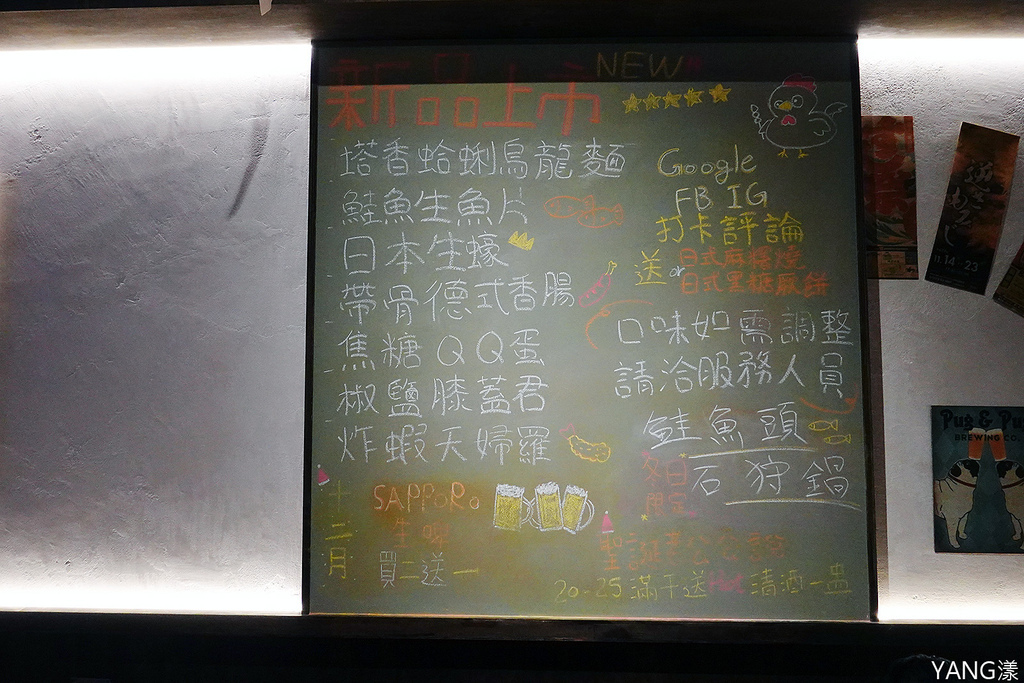 新品上市 NEW
塔香蛤蜊烏龍麵
鮭魚生魚片
日本生蠔
帶骨德式香腸
焦糖QQ蛋
椒鹽膝蓋君
炸蝦天婦羅
十二月
SAPPORO
生啤
買二送一
Google
FB IG
打卡評論
送
日式麻糬燒
or
日式黑糖蕨餅
口味如需調整
請洽服務人員
鮭魚頭
石狩鍋
冬日
限定
20-25 滿千送Hot清酒一盅
11.14 23
Pug & Pu
BREWING CO.
YANG漾